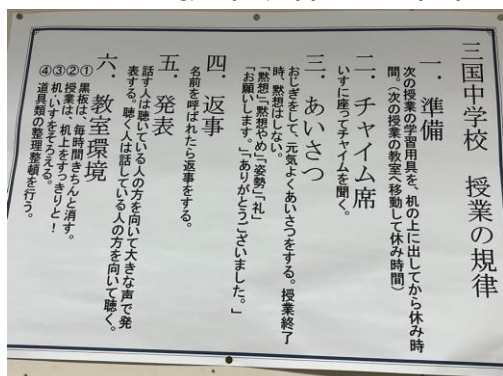 三国中学校 授業の規律
一．準備
次の授業の学習用具を、机の上に出してから休み時
間。（次の授業の教室へ移動して休み時間）
二．チャイム席
いすに座ってチャイムを聞く。
三．あいさつ
おじぎをして、元気よくあいさつをする。授業終了
時、黙想はしない。
「黙想」「黙想やめ」「姿勢」「礼」
「お願いします。」「ありがとうございました。」
四．返事
名前を呼ばれたら返事をする。
五．発表
話す人は聴いている人の方を向いて大きな声で発
表する。聴く人は話している人の方を向いて聴く。
六．教室環境
①黒板は、毎時間きちんと消す。
②授業は、机上をすっきりと！
③机・いすをそろえる。
④道具類の整理整頓を行う。